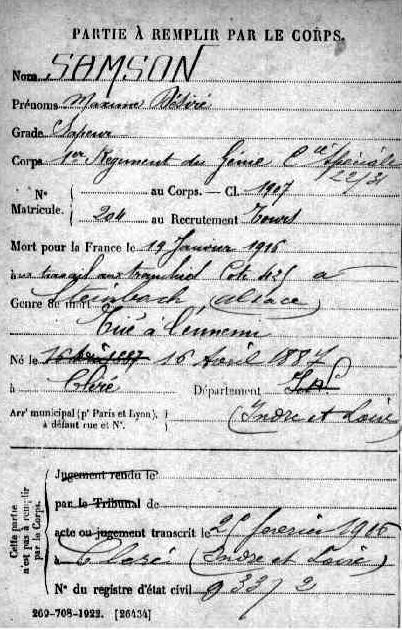 PARTIE À REMPLIR PAR LE CORPS.
Nom SAMSON
Prénoms Maxime Désiré
Grade Sapeur
Corps 1er Régiment du Génie Cie Spéciale
22/31
N° au Corps. — Cl. 1907
Matricule. 204 au Recrutement Tours
Mort pour la France le 19 Janvier 1916
aux travail aux tranchées Cote 425 à
Genre de mort Steinbach (Alsace)
Tué à l'ennemi
Né le 16 Avril 1887 16 Avril 1887
à Cléré Département
Arrt municipal (pr Paris et Lyon), à défaut rue et N°. (Indre et Loire)
Cette partie n'est pas à remplir par le Corps.
Jugement rendu le
par le Tribunal de
acte ou jugement transcrit le 25 février 1916
à Cléré (Indre et Loire)
N° du registre d'état civil 933/2
269-708-1922. [26434]